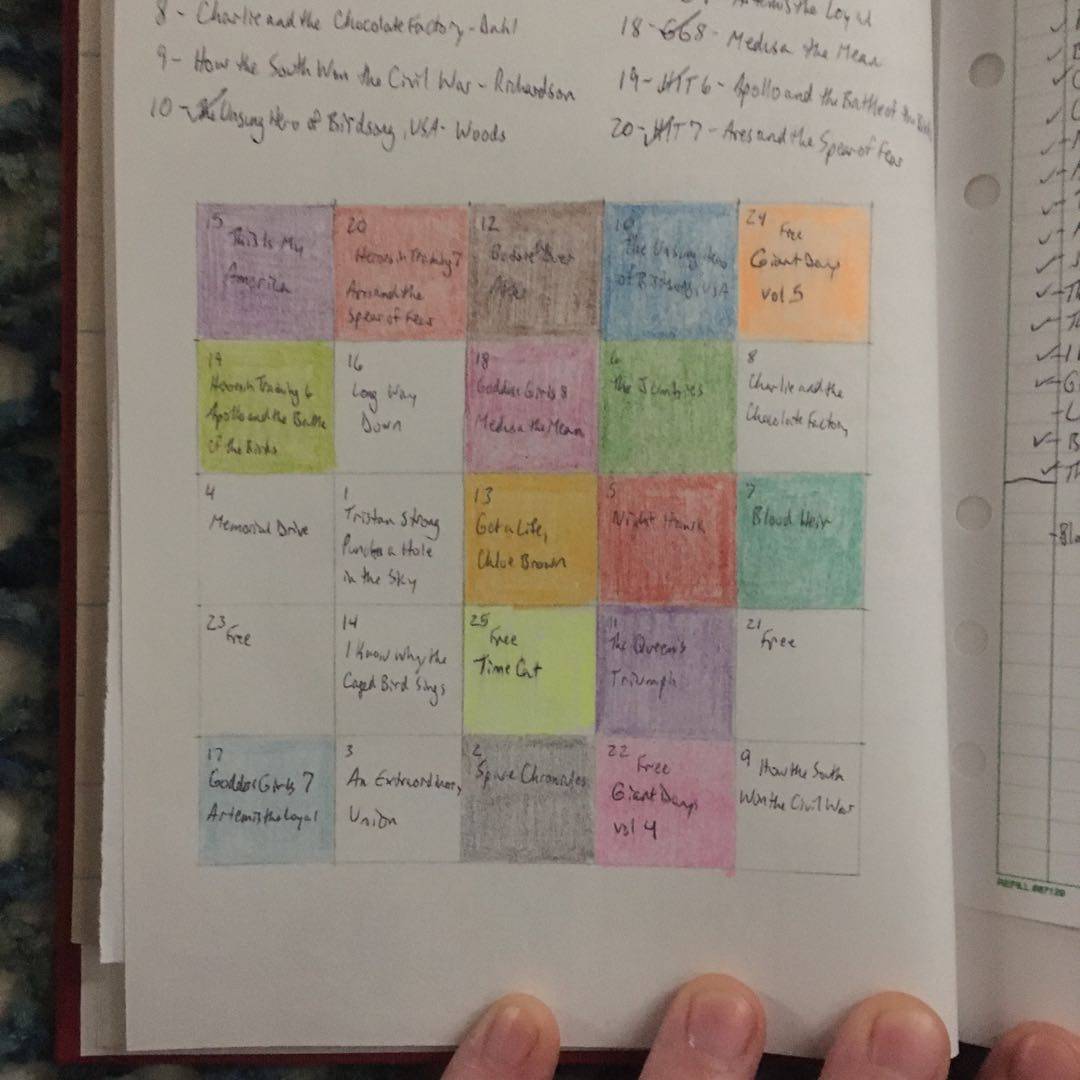 8 - Charlie and the Chocolate Factory - Dahl
9 - How the South Won the Civil War - Richardson
10 - The Unsung Hero of Birdsong, USA - Woods
Artemis the Loyal
18 - GG8 - Medusa the Mean
19 - HIT 6 - Apollo and the Battle of the Birds
20 - HIT 7 - Ares and the Spear of Fear
15
This Is My
America
20
Heroes in Training 7
Ares and the
Spear of Fear
12
Before the Ever
After
10
The Unsung Hero
of Birdsong, USA
24
Free
Giant Days
vol 5
19
Heroes in Training 6
Apollo and the Battle
of the Birds
16
Long Way
Down
18
Goddess Girls 8
Medusa the Mean
6
The Jumbies
8
Charlie and the
Chocolate Factory
4
Memorial Drive
1
Tristan Strong
Punches a Hole
in the Sky
13
Get a Life,
Chloe Brown
5
Night Hawk
7
Blood Heir
23
Free
14
I Know Why the
Caged Bird Sings
25
Free
Time Cat
11
The Queen's
Triumph
21
Free
17
Goddess Girls 7
Artemis the Loyal
3
An Extraordinary
Union
2
Spare Chronicles
22
Free
Giant Days
vol 4
9 How the South
Won the Civil War